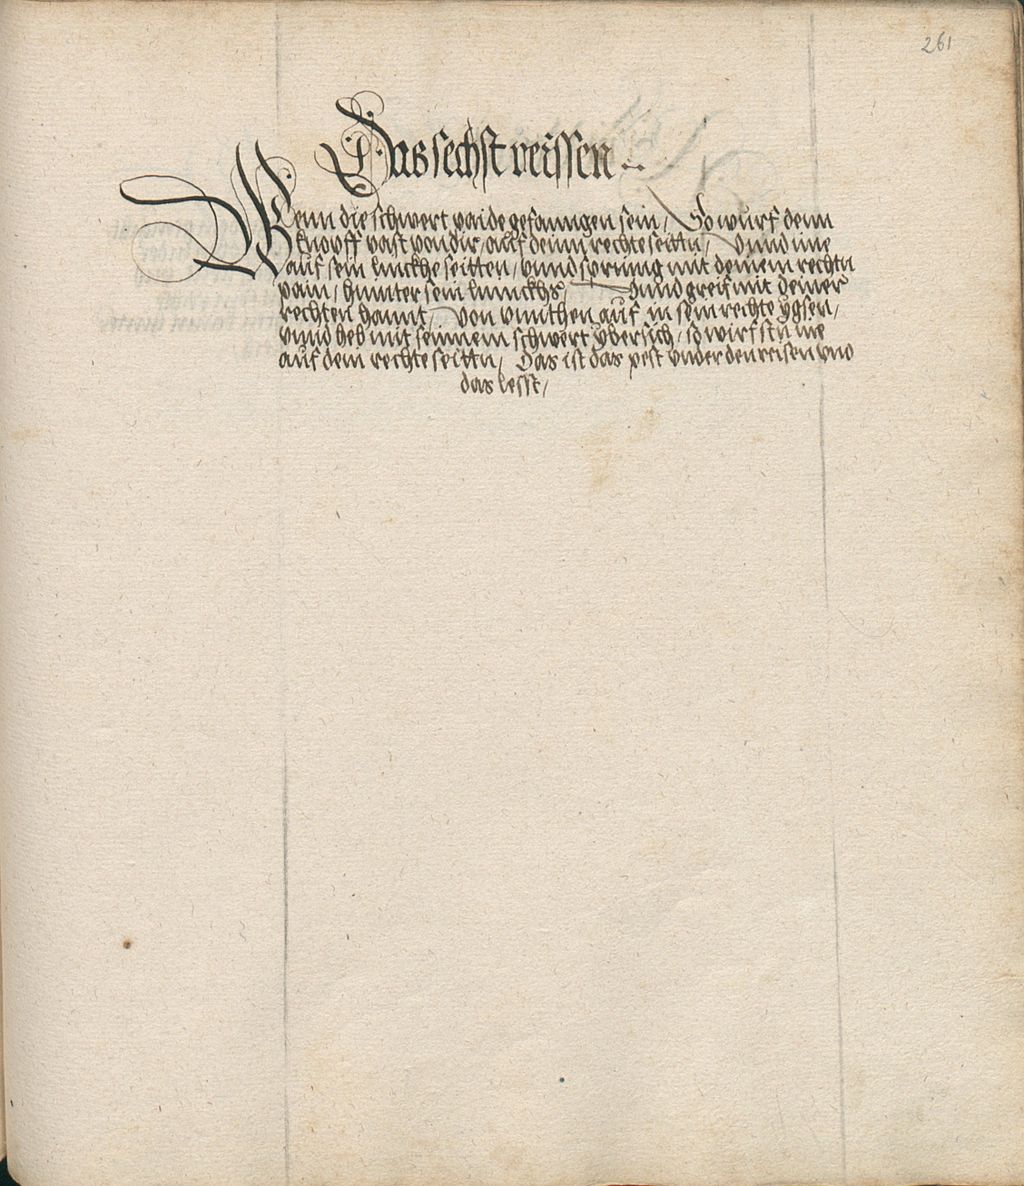 261
Das sechst reissen
Wenn die schwert paide gefanngen sein / So würf denn
knopff vast von dir / auf deinn rechte seittn / Vnnd ime
auf sein linckhe seitten / vnnd sprinng mit deinem rechtn
pain / hinnter sein linnckhs / Vnnd greif mit deiner
rechten hannt / Von vnnthen auf in sein rechte ygsen /
vnnd heb mit seinnem schwert ybersich / so wirfstu ine
auf dem rechte seittn / Das ist das pest vnder den reisen vnd
das lesst /